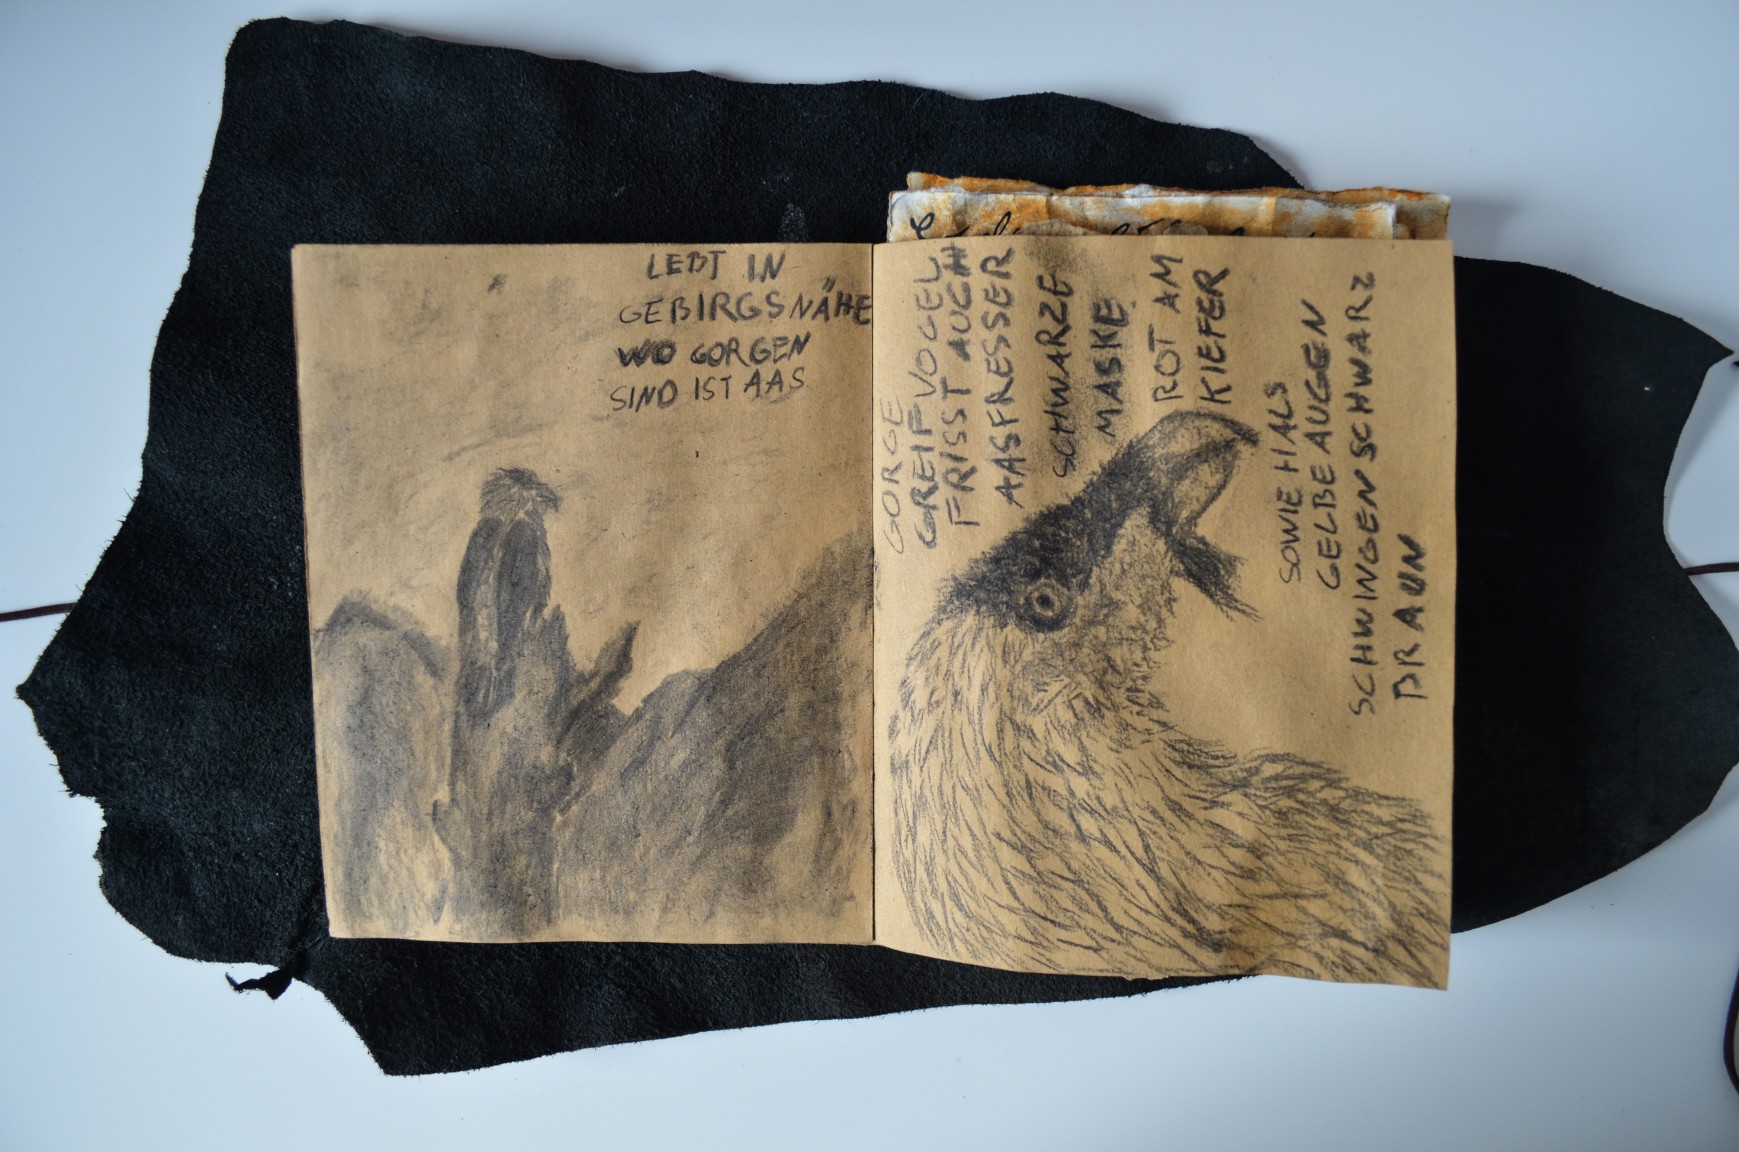 LEBT IN
GEBIRGSNÄHE
WO GORGEN
SIND IST AAS
GORGE
GREIFVOGEL
FRISST AUCH
AASFRESSER
SCHWARZE
MASKE
ROT AM
KIEFER
SOWIE HALS
GELBE AUGEN
SCHWINGEN SCHWARZ
BRAUN